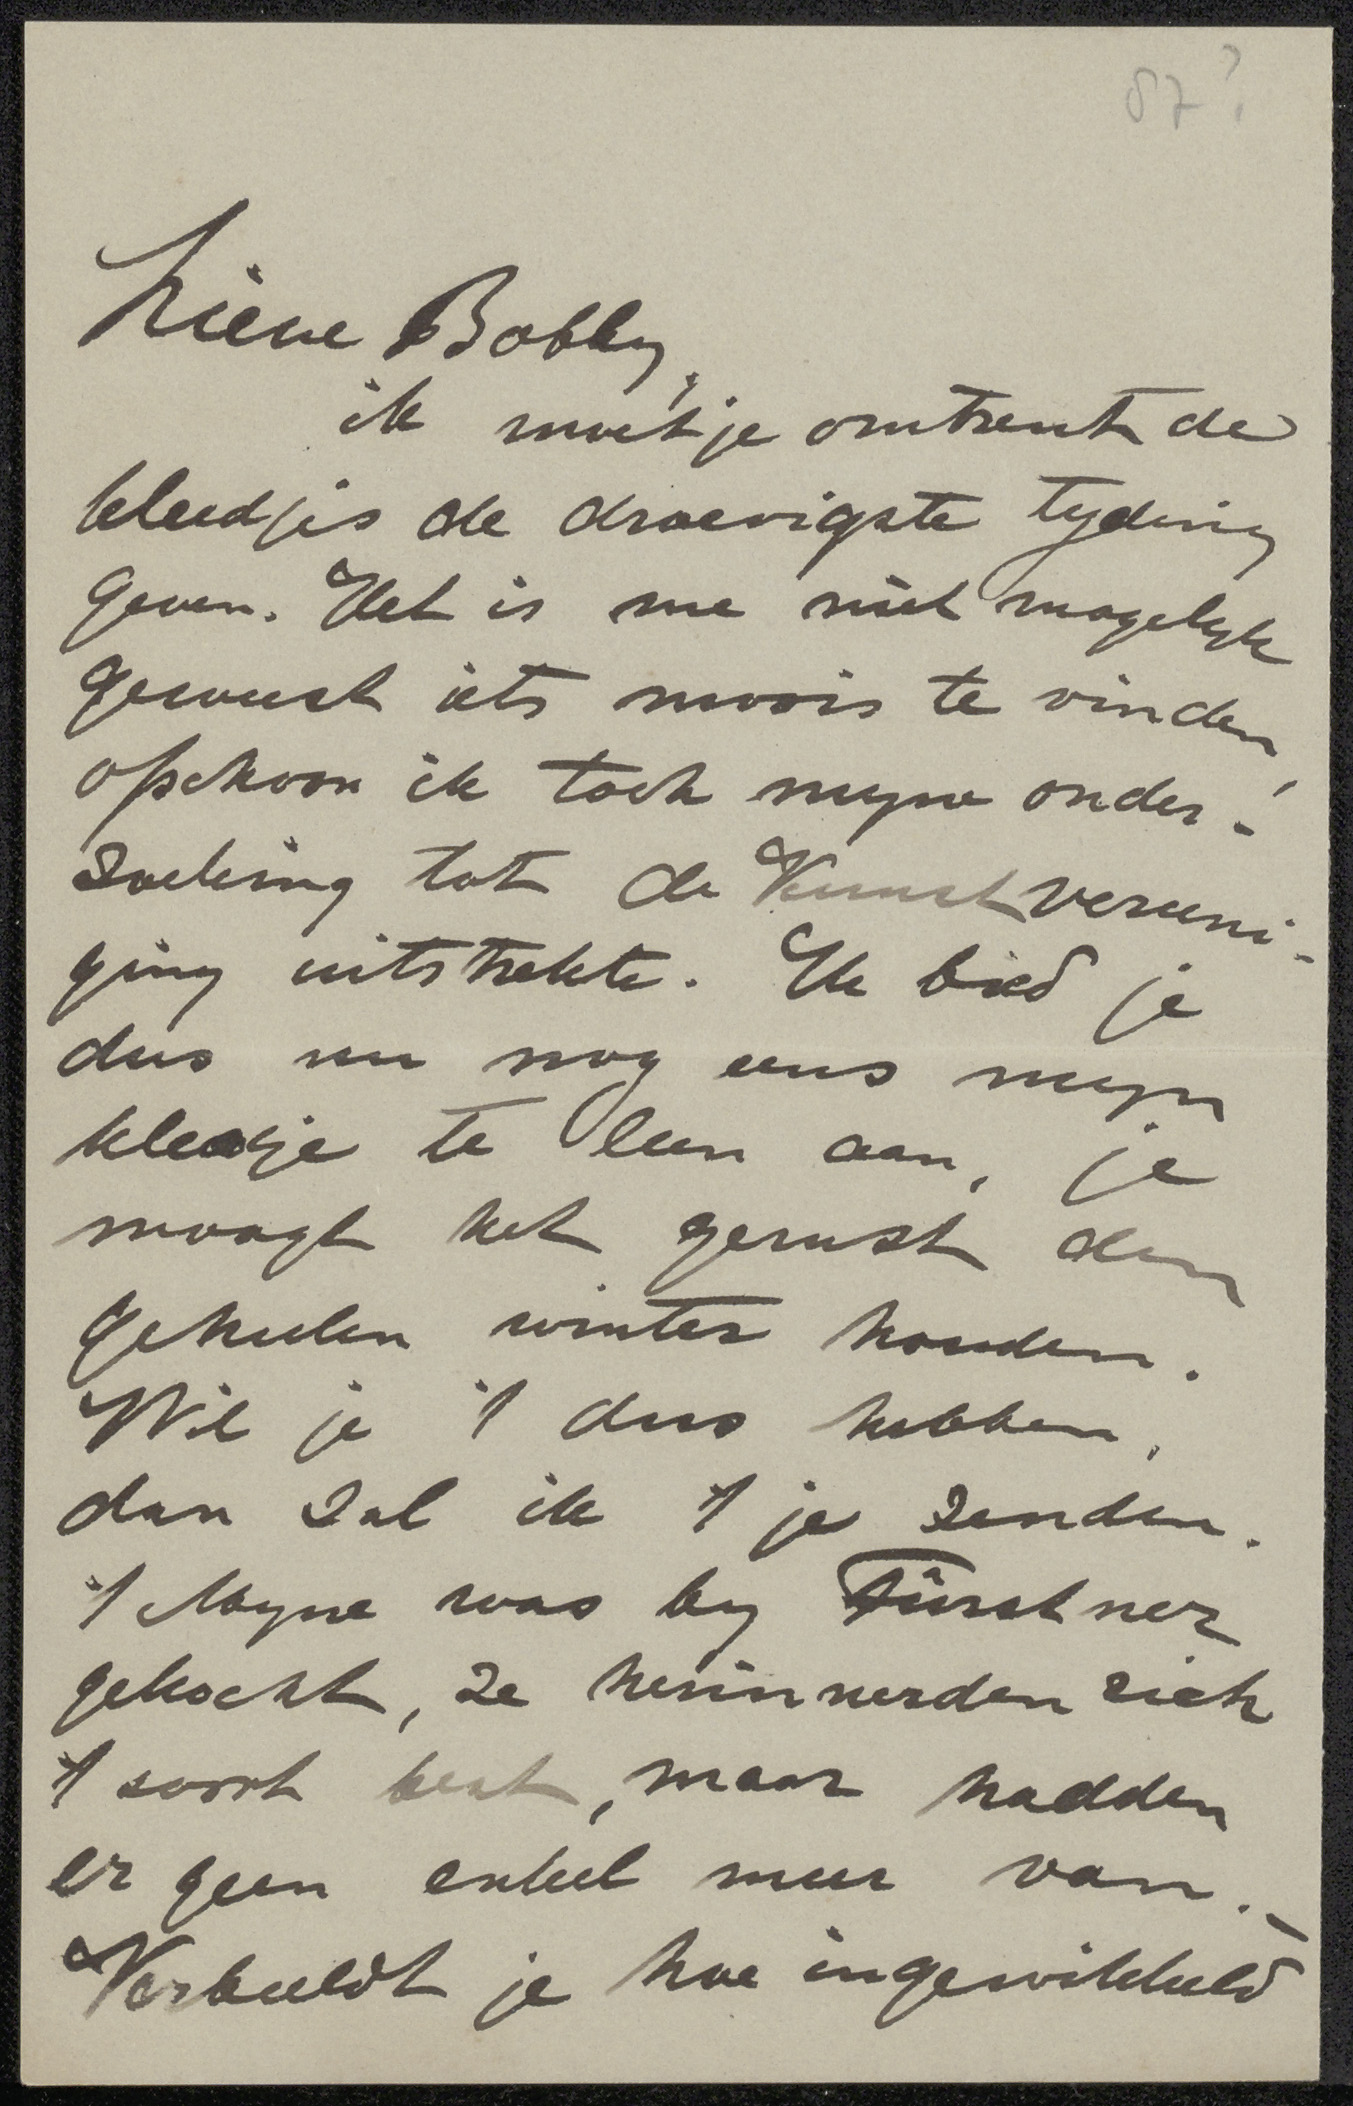 87?
Lieve Bobby,
ik moet je omtrent de
kleedjes de droevigste tyding
geven. Het is me niet mogelyk
geweest iets moois te vinden,
opschoon ik toch myne onder-
zoeking tot de Kunstvereeni-
ging uitstrekte. Ik bied je
dus nu nog eens myn
kleedje te leen aan, je
moogt het gerust den
geheelen winter houden.
Wil je 't dus hebben,
dan zal ik 't je zenden.
't Myne was by Fürstner
gekocht, ze herinnerden zich
't soort best, maar hadden
er geen enkel meer van. -
Verbeeldt je hoe ingewikkeld